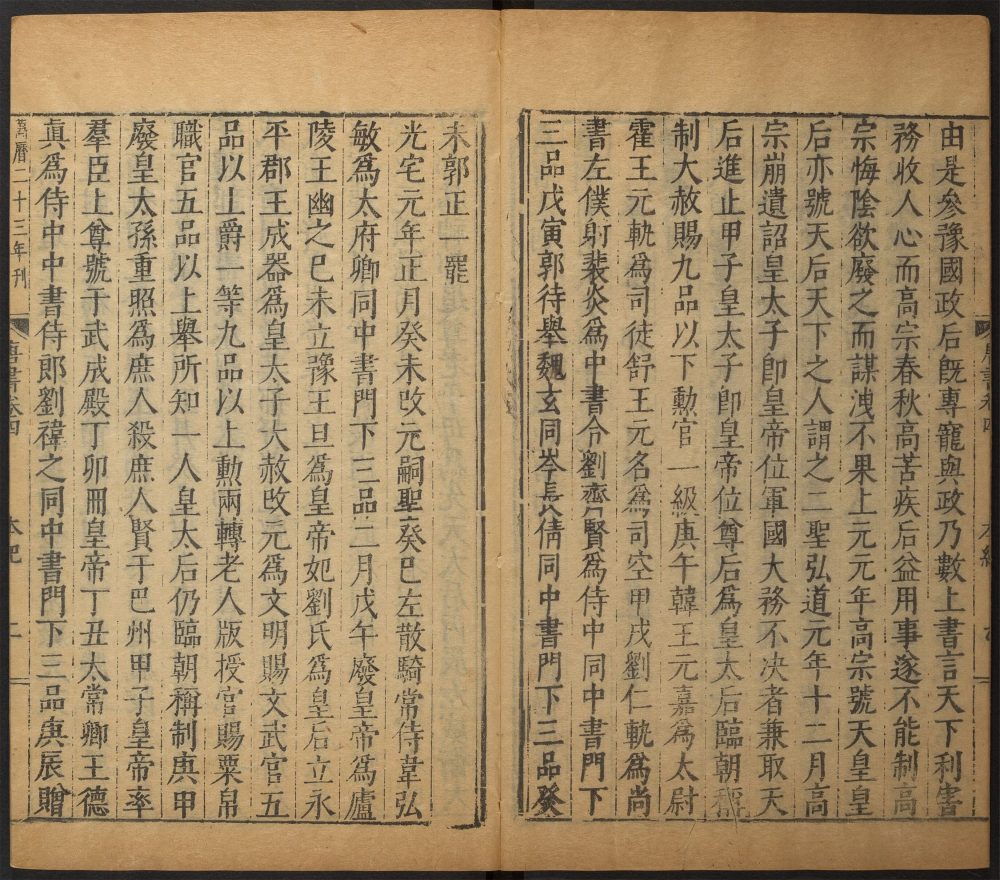 由是參豫國政后旣專寵與政乃數上書言天下利害
務收人心而高宗春秋高苦疾后益用事遂不能制高
宗悔陰欲廢之而謀洩不果上元元年高宗號天皇皇
后亦號天后天下之人謂之二聖弘道元年十二月高
宗崩遺詔皇太子卽皇帝位軍國大務不决者兼取天
后進止甲子皇太子卽皇帝位尊后爲皇太后臨朝稱
制大赦賜九品以下勲官一級庚午韓王元嘉爲太尉
霍王元軌爲司徒舒王元名爲司空甲戌劉仁軌爲尚
書左僕射裴炎爲中書令劉齊賢爲侍中同中書門下
三品戊寅郭待舉魏玄同岑長倩同中書門下三品癸
未郭正一罷
光宅元年正月癸未改元嗣聖癸巳左散騎常侍韋弘
敏爲太府卿同中書門下三品二月戊午廢皇帝爲廬
陵王幽之己未立豫王旦爲皇帝妃劉氏爲皇后立永
平郡王成器爲皇太子大赦改元爲文明賜文武官五
品以上爵一等九品以上勲兩轉老人版授官賜粟帛
職官五品以上舉所知一人皇太后仍臨朝稱制庚申
廢皇太孫重照爲庶人殺庶人賢于巴州甲子皇帝率
羣臣上尊號于武成殿丁卯冊皇帝丁丑太常卿王德
眞爲侍中中書侍郎劉禕之同中書門下三品庚辰贈
萬曆二十三年刊 唐書卷四 本紀 二